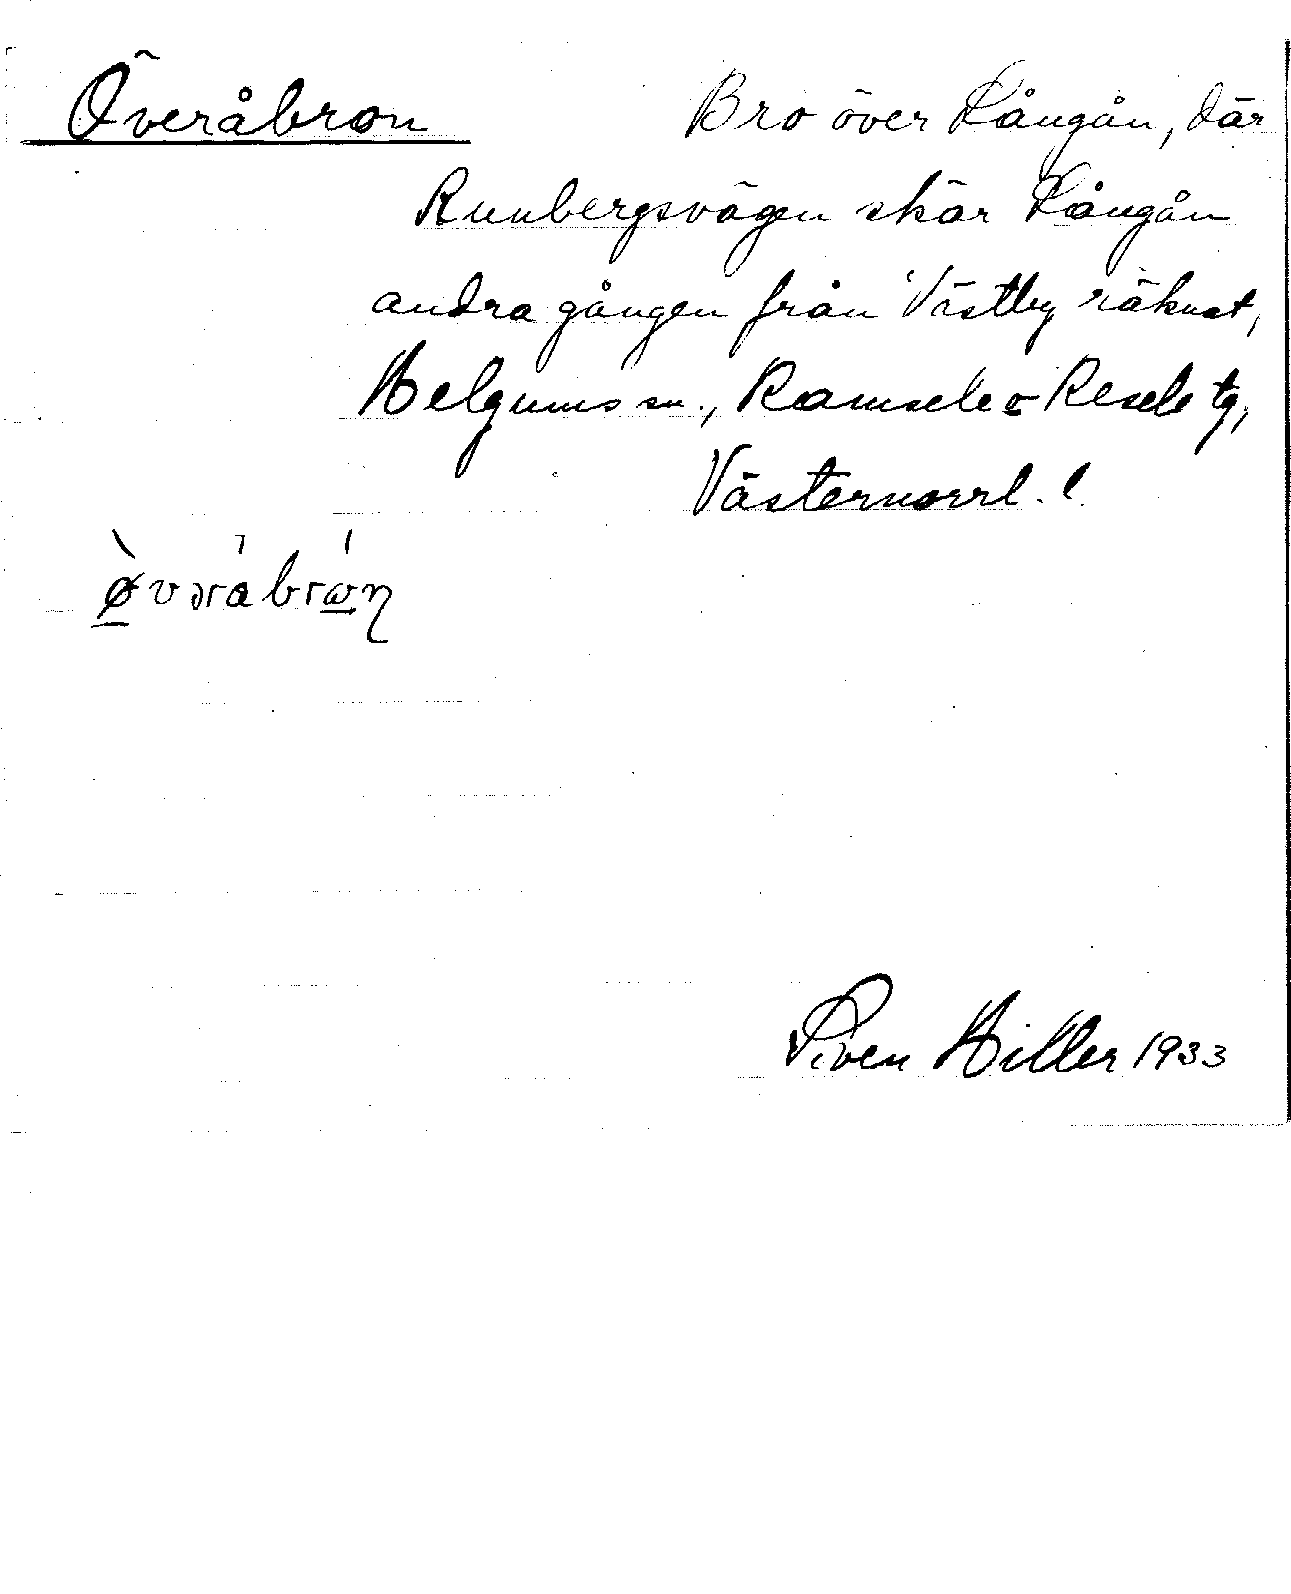 Överåbron
Bro över Långån, där
Runbergsvägen skär Långån
andra gången från Västby räknat,
Helgums sn., Ramsele o Resele tg,
Västernorrl. l
Sven Hiller 1933